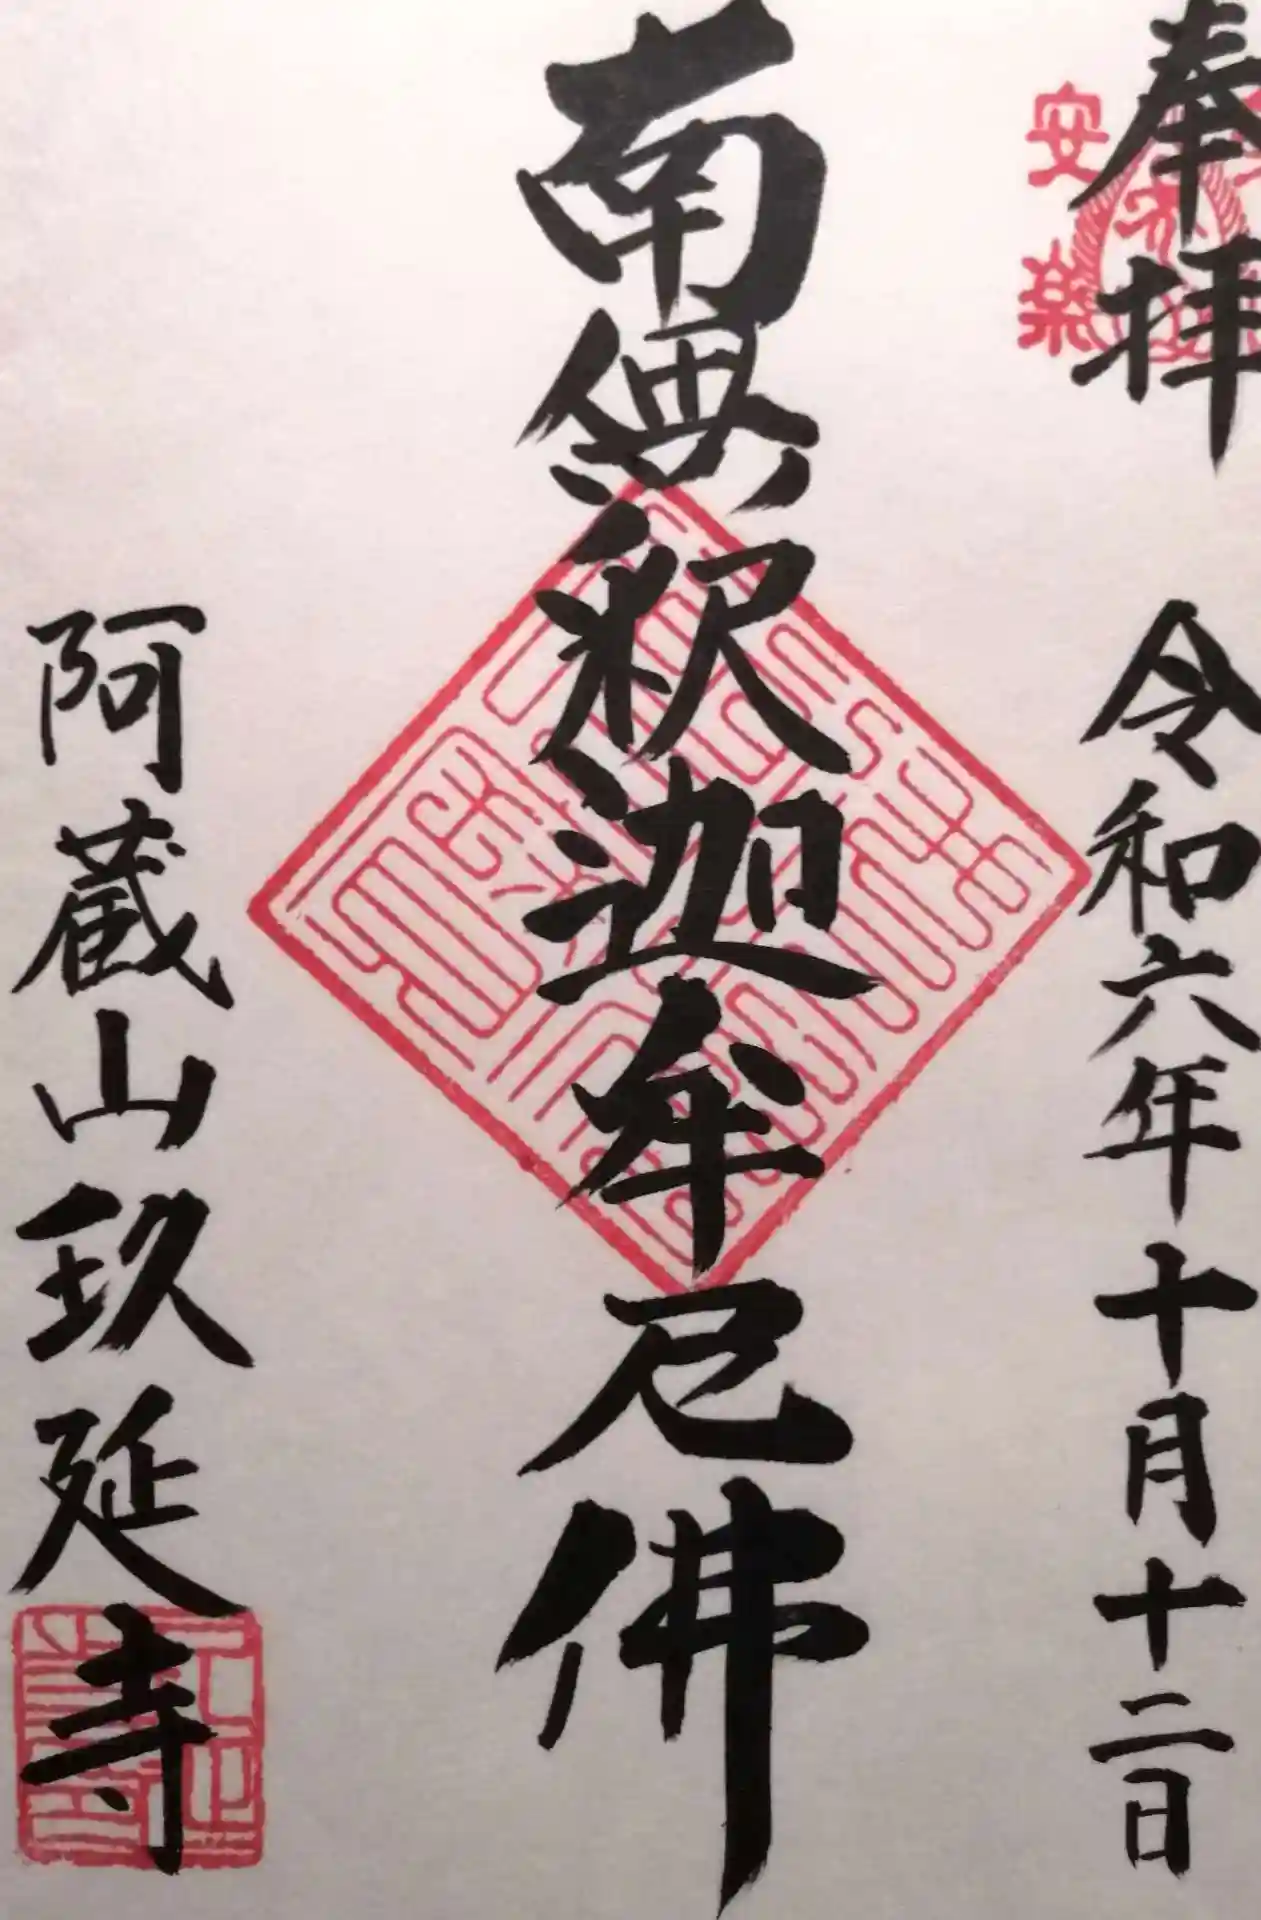 奉拝
令和六年十月十二日
安楽
南無釈迦牟尼佛
阿蔵山玖延寺